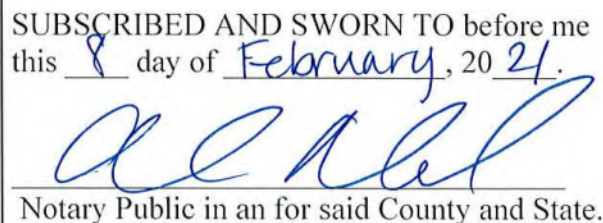 SUBSCRIBED AND SWORN TO before me
this 8 day of February, 20 21.
Notary Public in an for said County and State.